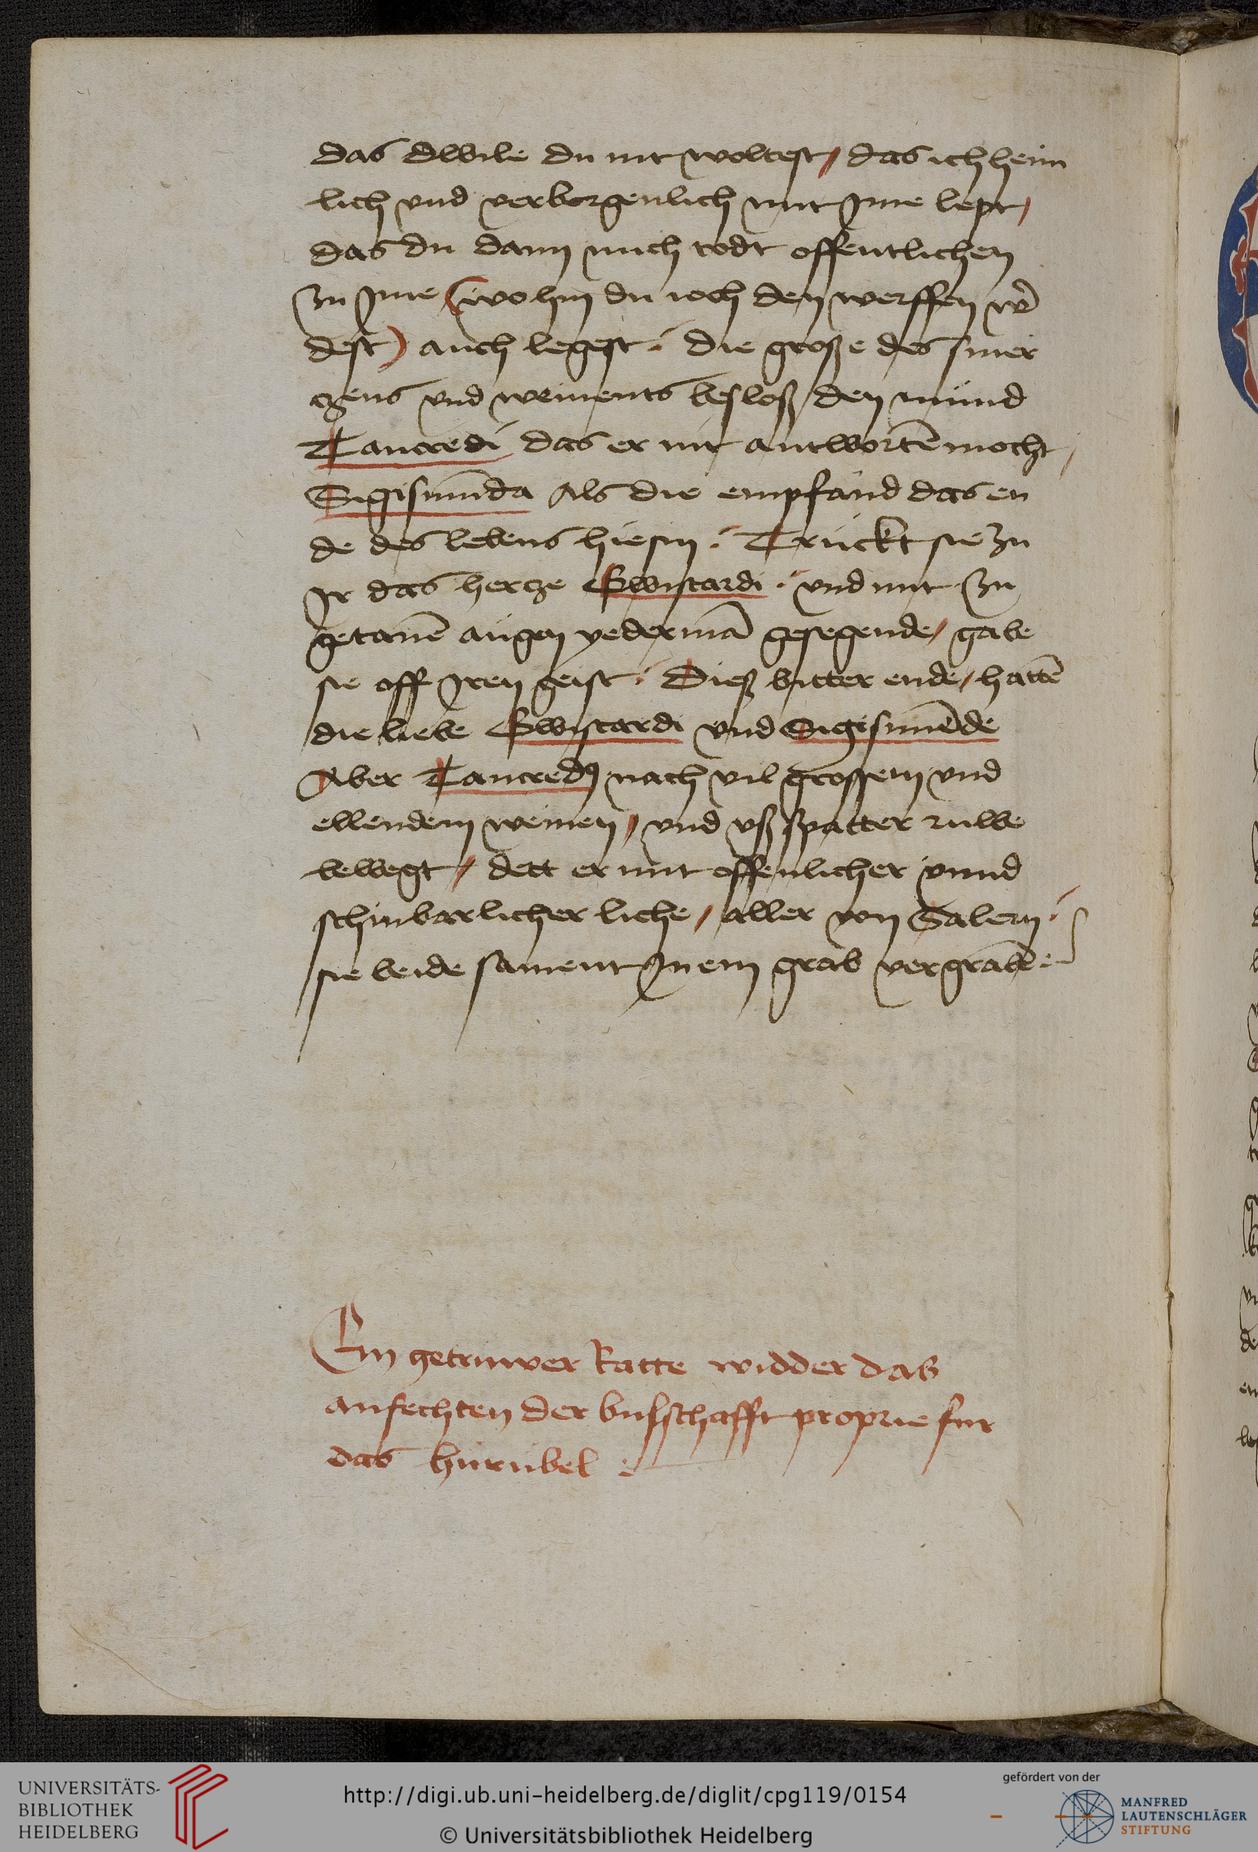 das dwile du nit woltest / das ich heim
lich vnd verborgenlich mit Jme lept /
das du dann mich todt offentlichen
zu Jme (wo hin du ioch den werffen w̑
dest) auch legest · die große des smer
czens vnd weinents besloß den mund
Tancredi das er nit antwortē mocht /
Sigismūnda Als die empfand das en
de des lebens hie sin · Trückt sie zu
Jr das hercze Gwiscardi · vnd mit zu
getanē augen yedermā gesegende / gabe
sie off Jren geist · Dieß bitter ende / hattē
die liebe Gwiscardi vnd Sigismūnde
Aber Tancredꝰ nach vil grossem vnd
ellendem weinen / vnd vß spatter ruwe
bewegt / dett er mit offenlicher vnnd
schinbarlicher liche / aller von Salern ·
sie beide sament Jn ein grab vergrabē :
Ein getruwer Ratte widder das
anfechten der bulschafft proprie fur
das hurübel :
UNIVERSITÄTS-
BIBLIOTHEK
HEIDELBERG
http://digi.ub.uni-heidelberg.de/diglit/cpg119/0154
© Universitätsbibliothek Heidelberg
gefördert von der
MANFRED
LAUTENSCHLÄGER
STIFTUNG